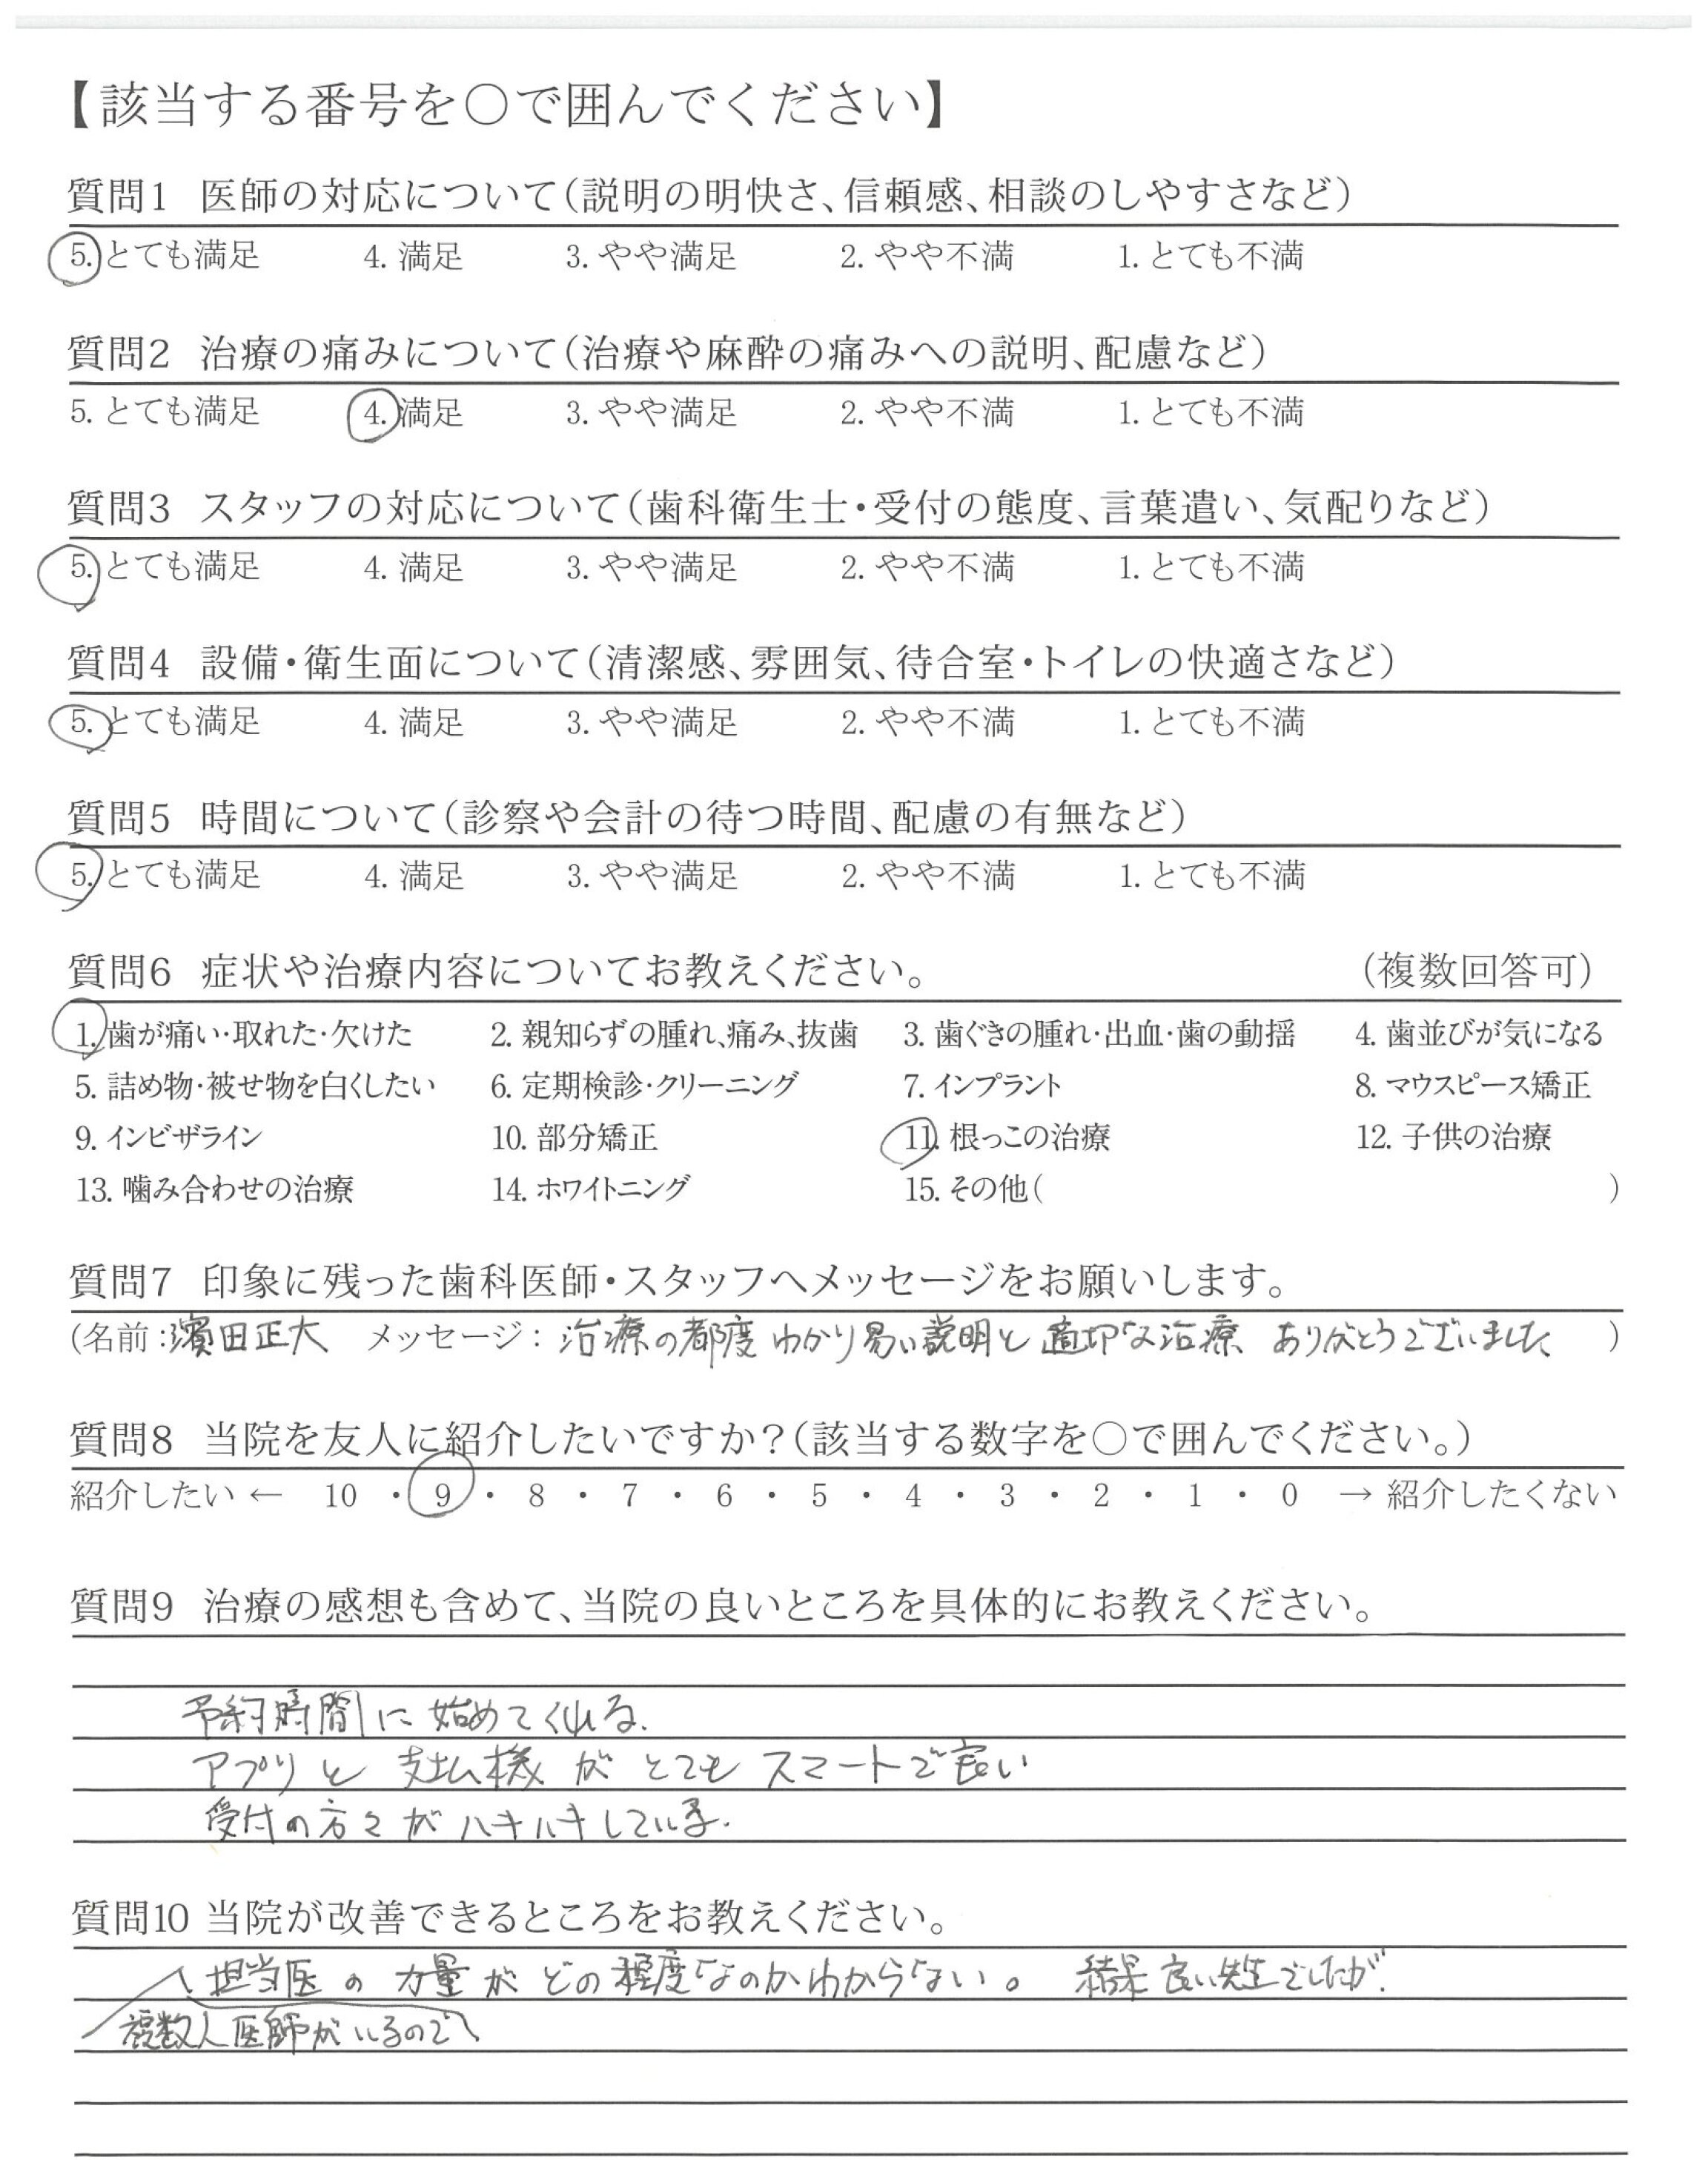 【該当する番号を○で囲んでください】
質問1 医師の対応について（説明の明快さ、信頼感、相談のしやすさなど）
5. とても満足 4. 満足 3. やや満足 2. やや不満 1. とても不満
質問2 治療の痛みについて（治療や麻酔の痛みへの説明、配慮など）
5. とても満足 4. 満足 3. やや満足 2. やや不満 1. とても不満
質問3 スタッフの対応について（歯科衛生士・受付の態度、言葉遣い、気配りなど）
5. とても満足 4. 満足 3. やや満足 2. やや不満 1. とても不満
質問4 設備・衛生面について（清潔感、雰囲気、待合室・トイレの快適さなど）
5. とても満足 4. 満足 3. やや満足 2. やや不満 1. とても不満
質問5 時間について（診察や会計の待つ時間、配慮の有無など）
5. とても満足 4. 満足 3. やや満足 2. やや不満 1. とても不満
質問6 症状や治療内容についてお教えください。 （複数回答可）
1. 歯が痛い・取れた・欠けた 2. 親知らずの腫れ、痛み、抜歯 3. 歯ぐきの腫れ・出血・歯の動揺 4. 歯並びが気になる
5. 詰め物・被せ物を白くしたい 6. 定期検診・クリーニング 7. インプラント 8. マウスピース矯正
9. インビザライン 10. 部分矯正 11. 根っこの治療 12. 子供の治療
13. 噛み合わせの治療 14. ホワイトニング 15. その他（ ）
質問7 印象に残った歯科医師・スタッフへメッセージをお願いします。
（名前：濱田正大 メッセージ：治療の都度わかり易い説明と適切な治療 ありがとうございました ）
質問8 当院を友人に紹介したいですか？（該当する数字を○で囲んでください。）
紹介したい ← 10 ・ 9 ・ 8 ・ 7 ・ 6 ・ 5 ・ 4 ・ 3 ・ 2 ・ 1 ・ 0 → 紹介したくない
質問9 治療の感想も含めて、当院の良いところを具体的にお教えください。
予約時間に始めてくれる．
アプリと支払機がとてもスマートで良い
受付の方々がハキハキしている．
質問10 当院が改善できるところをお教えください。
担当医の力量がどの程度なのかわからない。 結果良い先生でしたが．
複数人医師がいるので